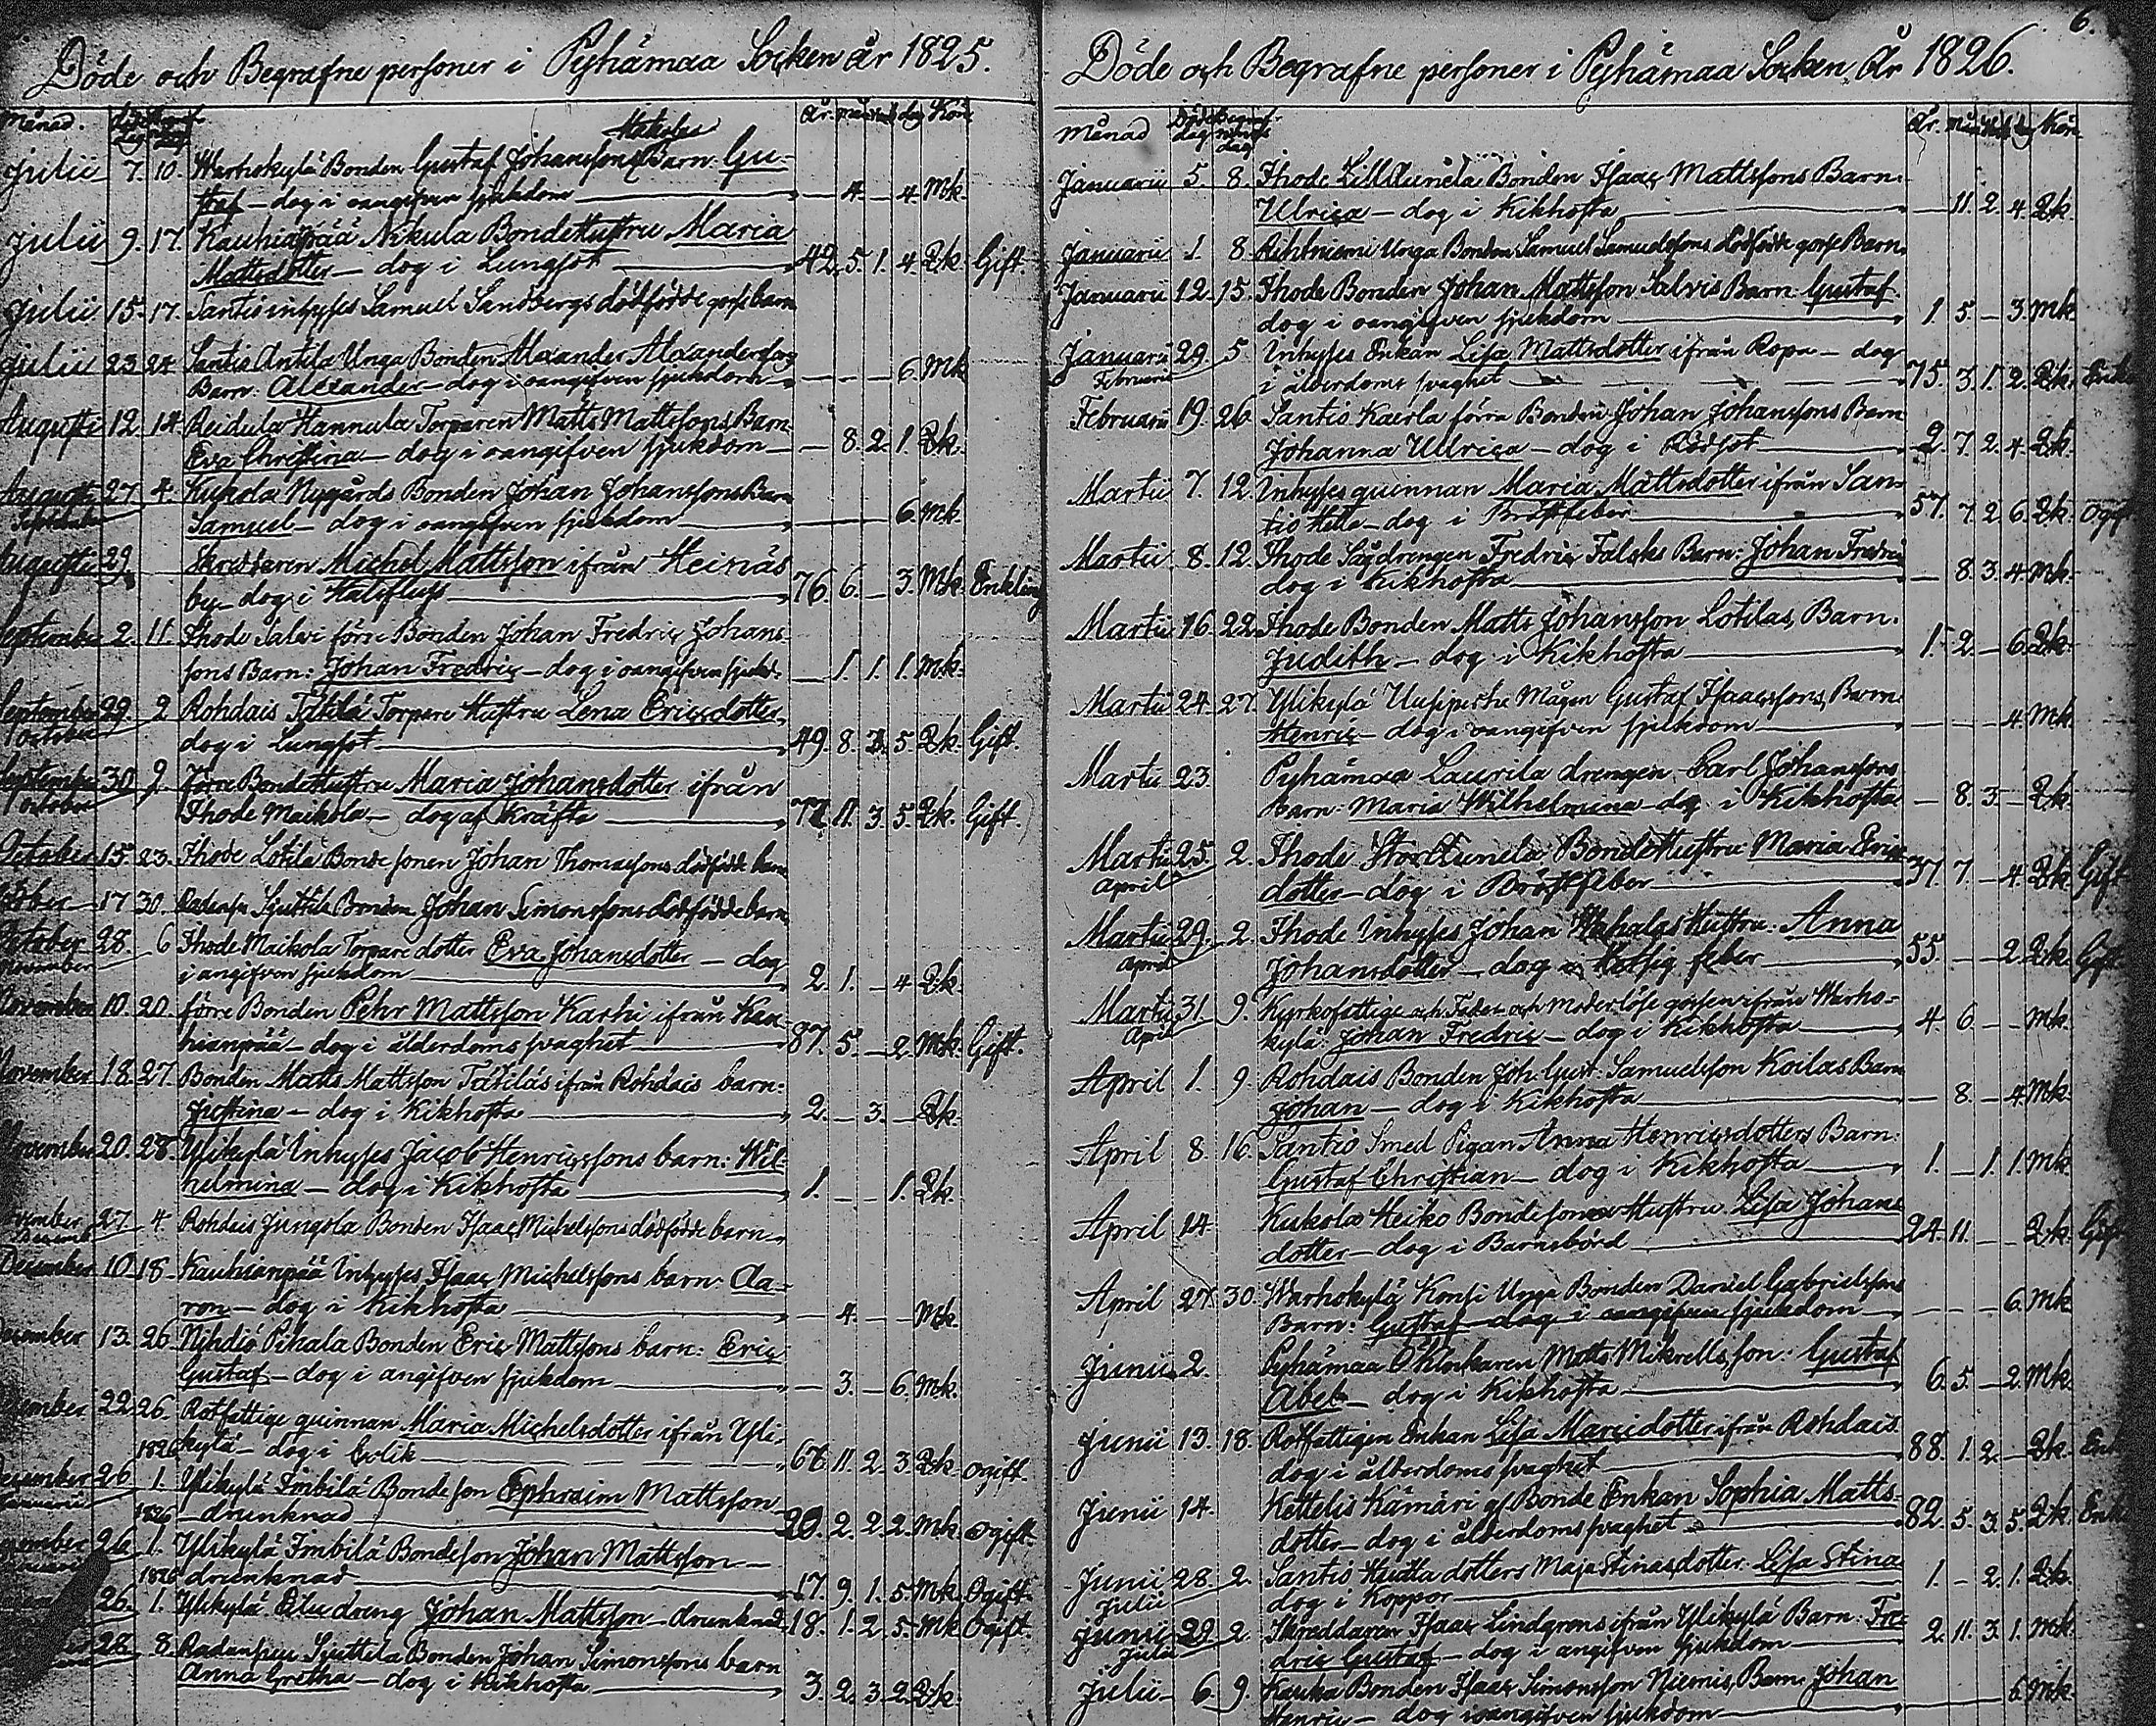 Döde och Begrafne personer i Pyhämaa Socken år 1825.
Månad. År. Kön
Julii 7. 10. Warhokylä Bonden Gustaf Johanssons Barn: Gu-
staf — dog i oangifven sjukdom — 4. — 4. Mk.
Julii 9. 17. Kauhianpää Nikula Bonde Hustru Maria
Mattsdotter — dog i Lungsot 42. 5. 1. 4. Qk. Gift.
Julii 15. 17. Santio inhyses Samuel Sandbergs dödfödde gosse barn
Julii 23. 24. Santio Antila Unga Bonden Alexander Alexanderssons
Barn: Alexander — dog i oangifven sjukdom — — — 6. Mk
Augusti 12. 14. Reidula Hannula Torparen Matts Mattssons Barn
Eva Christina — dog i oangifven sjukdom — 8. 2. 1. Qk.
Augusti 27. 4. Kukola Nygårds Bonden Johan Johanssons Barn
September Samuel — dog i oangifven sjukdom 6. Mk.
Augusti 29. Skreddaren Michel Mattsson ifrån Heinäs
by — dog i Halsfluss 76. 6. — 3. Mk. Enkling
September 2. 11. Ihode Salvi förre Bonden Johan Fredric Johans-
sons Barn: Johan Fredric — dog i oangifven sjukd. — 1. 1. 1. Mk.
September 29. 2 Rohdais Tätilä Torpare Hustru Lena Ericsdotter
October dog i Lungsot 49. 8. 3. 5. Qk. Gift.
September 30. 9. Förre Bonde Hustru Maria Johansdotter ifrån
October Ihode Maikola — dog af Kräfta 77. 11. 3. 5. Qk. Gift.
October 15. 23. Ihode Lotila Bonde sonen Johan Thomassons dödfödde barn
October 17. 30. Sjuttila Bonden Johan Simonssons dödfödde barn
October 28. 6 Ihode Maikola Torpare dotter Eva Johansdotter — dog
November i angifven sjukdom 2. 1. — 4. Qk.
November 10. 20. förre Bonden Pehr Mattsson Karhi ifrån Kau-
hianpää — dog i ålderdoms svaghet 87. 5. — 2. Mk. Gift.
November 18. 27. Bonden Matts Mattsson Tätiläs ifrån Rohdais barn:
Justina — dog i Kikhosta 2. — 3. — Qk.
November 20. 28. Ylikylä Inhyses Jacob Henricssons barn: Wil-
helmina — dog i Kikhosta 1. — — 1. Qk.
November 27. 4. Rohdais Jungola Bonden Isaac Michelssons dödfödde barn
December 10. 18. Kauhianpää Inhyses Isaac Michelssons barn: Aa-
ron — dog i Kikhosta — 4. — — Mk.
December 13. 26. Nihdiö Pihala Bonden Eric Mattssons barn: Eric
Gustaf — dog i angifven sjukdom — 3. — 6. Mk.
December 22. 26. Rotfattige quinnan Maria Michelsdotter ifrån Yli-
kylä — dog i Colik 67. 11. 2. 3. Qk. Ogift
1826
December 26. 1. Ylikylä Imbilä Bonde son Ephraim Mattsson
Januarii — drunknad 20. 2. 2. 2. Mk. Ogift.
1826
December 26. 1. Ylikylä Imbilä Bondeson Johan Mattsson —
drunknad 17. 9. 1. 5. Mk. Ogift.
1826
26. 1. Ylikylä dreng Johan Mattsson — drunknad 18. 1. 2. 5. Mk Ogift
28. 8. Sjuttila Bonden Johan Simonssons barn
Anna Gretha — dog i Kikhosta 3. 2. 3. 2. Qk.
6.
Döde och Begrafne personer i Pyhämaa Socken, År 1826.
Månad Döds dag Begraf-nings dag År. Kön
Januarii 5. 8. Ihode LillKunela Bonden Isaac Mattssons Barn:
Ulrica — dog i Kikhosta — 11. 2. 4. Qk.
Januarii 1. 8. Rihtniemi Unga Bonden Samuel Samuelssons dödfödde gosse Barn
Januarii 12. 15. Ihode Bonden Johan Mattsson Salvis Barn Gustaf
dog i oangifven sjukdom 1. 5. — 3. Mk.
Januarii 29. 5. Inhyses Enkan Lisa Mattsdotter ifrån Ropa — dog
Februarii i ålderdoms svaghet 75. 3. 1. 2. Qk. Enka
Februarii 19. 26. Santio Kaerla förra Bonden Johan Johanssons Barn
Johanna Ullrica — dog i Rödsot 2. 7. 2. 4. Qk.
Martii 7. 12. Inhyses quinnan Maria Mattsdotter ifrån San-
tio — dog i Bröstfeber 57. 7. 2. 6. Qk. Ogift
Martii 8. 12. Ihode Sagdrengen Fredric Falcks Barn: Johan Fredric
dog i Kikhosta — 8. 3. 4. Mk.
Martii 16. 22. Ihode Bonden Matts Johansson Lotilas, Barn:
Judith — dog i Kikhosta 1. 2. — 6. Qk.
Martii 24. 27. Ylikylä Uusipirtti Mågen Gustaf Isaacssons Barn
Henric — dog i oangifven sjukdom 4. Mk.
Martii 23. Pyhämaa Laurila drengen Carl Johanssons
barn: Maria Wilhelmina — dog i Kikhosta — 8. 3. — Qk.
Martii 25. 2. Ihode StorKunela BondeHustru Maria Erics
April dotter — dog i Bröstfeber 37. 7. — 4. Qk. Gift
Martii 29. 2. Ihode Inhyses Johan Hustru: Anna
April Johansdotter — dog i Hetsig feber 55. — — 2. Qk. Gift
Martii 31. 9. Kyrkofattige och Fader och Moderlöse gossen ifrån Warho-
April kylä: Johan Fredric — dog i Kikhosta 4. 6. — — Mk.
April 1. 9. Rohdais Bonden Joh. Gust. Samuelsson Koilas Barn
Johan — dog i Kikhosta — 8. — 4. Mk.
April 8. 16. Santio Smed Pigan Anna Henricsdotters Barn:
Gustaf Christian — dog i Kikhosta 1. — 1. 1. Mk
April 14. Kukola Heiko Bondesonen Hustru Lisa Johans
dotter — dog i Barnsbörd 24. 11. — — Qk. Gift
April 27. 30. Warhokylä Konsi Unga Bonden Daniel Gabrielssons
Barn: Gustaf — dog i oangifven sjukdom 6. Mk
Junii 2. Pyhämaa Klockaren Matts Mikrells son: Gustaf
Abel — dog i Kikhosta 6. 5. — 2. Mk.
Junii 13. 18. Rotfattigen Enkan Lisa Marcidotter ifrån Rohdais
dog i ålderdoms svaghet 88. 1. 2. — Qk. Enk
Junii 14. Kettelis Kämäri gl. Bonde Enkan Sophia Matts-
dotter — dog i ålderdoms svaghet 82. 5. 3. 5. Qk. Enk
Junii 28. 2. Santio dotters Maja Stinas dotter: Lisa Stina
Julii dog i Koppor 1. — 2. 1. Qk.
Junii 29. 2. Skreddaren Isaac Lindgrens ifrån Ylikylä Barn: Fre-
Julii dric Gustaf — dog i angifven sjukdom 2. 11. 3. 1. Mk.
Julii 6. 9. Kauka Bonden Isaac Simonsson Niemis, Barn: Johan
Henric — dog i oangifven sjukdom 6. Mk.